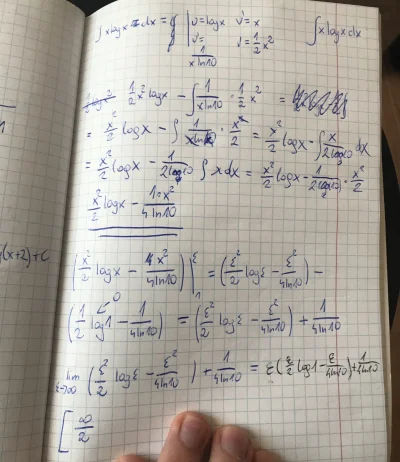 ∫ x log x dx = | u = log x   v' = x   ∫ x log x dx
| u' = 1/(x ln 10)   v = 1/2 x²
1/2 x² log x - ∫ 1/(x ln 10) · 1/2 x² =
= x²/2 log x - ∫ 1/(x ln 10) · x²/2 = x²/2 log x - ∫ x/(2 ln 10) dx
= x²/2 log x - 1/(2 ln 10) ∫ x dx = x²/2 log x - 1/(2 ln 10) · x²/2
x²/2 log x - 1·x²/(4 ln 10)
(x+2)+c
(x²/2 log x - x²/(4 ln 10)) |₁^ε = (ε²/2 log ε - ε²/(4 ln 10)) -
(1/2 log 1 - 1/(4 ln 10)) = (ε²/2 log ε - ε²/(4 ln 10)) + 1/(4 ln 10)
0
lim ε→∞ (ε²/2 log ε - ε²/(4 ln 10)) + 1/(4 ln 10) = ε(ε/2 log 1 - ε/(4 ln 10)) + 1/(4 ln 10)
[ ∞/2